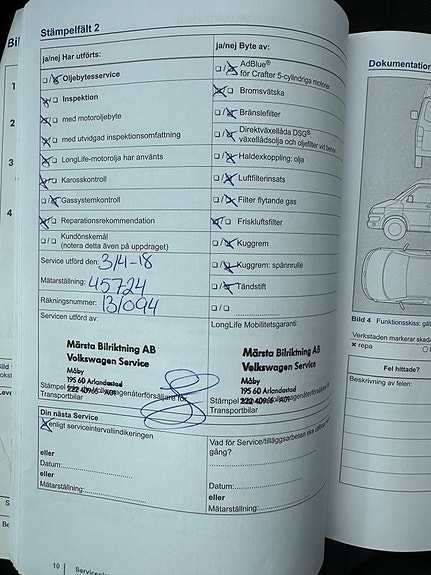 Stämpelfält 2
ja/nej Har utförts:
Oljebytesservice
Inspektion
med motoroljebyte
med utvidgad inspektionsomfattning
LongLife-motorolja har använts
Karosskontroll
Gassystemkontroll
Reparationsrekommendation
Kundönskemål
(notera detta även på uppdraget)
Service utförd den: 3/4-18
Mätarställning: 45724
Räkningsnummer: 131094
Servicen utförd av:
Märsta Bilriktning AB
Volkswagen Service
Måby
195 60 Arlandastad
Stämpel
Transportbilar
Din nästa Service
enligt serviceintervallindikeringen
eller
Datum:
eller
Mätarställning:
10
ja/nej Byte av:
AdBlue®
för Crafter 5-cylindriga motorer
Bromsvätska
Bränslefilter
Direktväxellåda DSG®:
växellådsolja och oljefilter vid behov
Haldexkoppling: olja
Luftfilterinsats
Filter flytande gas
Friskluftsfilter
Kuggrem
Kuggrem: spännrulle
Tändstift
LongLife Mobilitetsgaranti:
Märsta Bilriktning AB
Volkswagen Service
Måby
195 60 Arlandastad
Stämpel
Transportbilar
Vad för Service/tilläggsarbeten ska utföras
gång?
Datum:
Mätarställning:
Dokumentation
Bild 4 Funktionsskiss:
Verkstaden markerar
x repa
Fel hittade?
Beskrivning av felen: